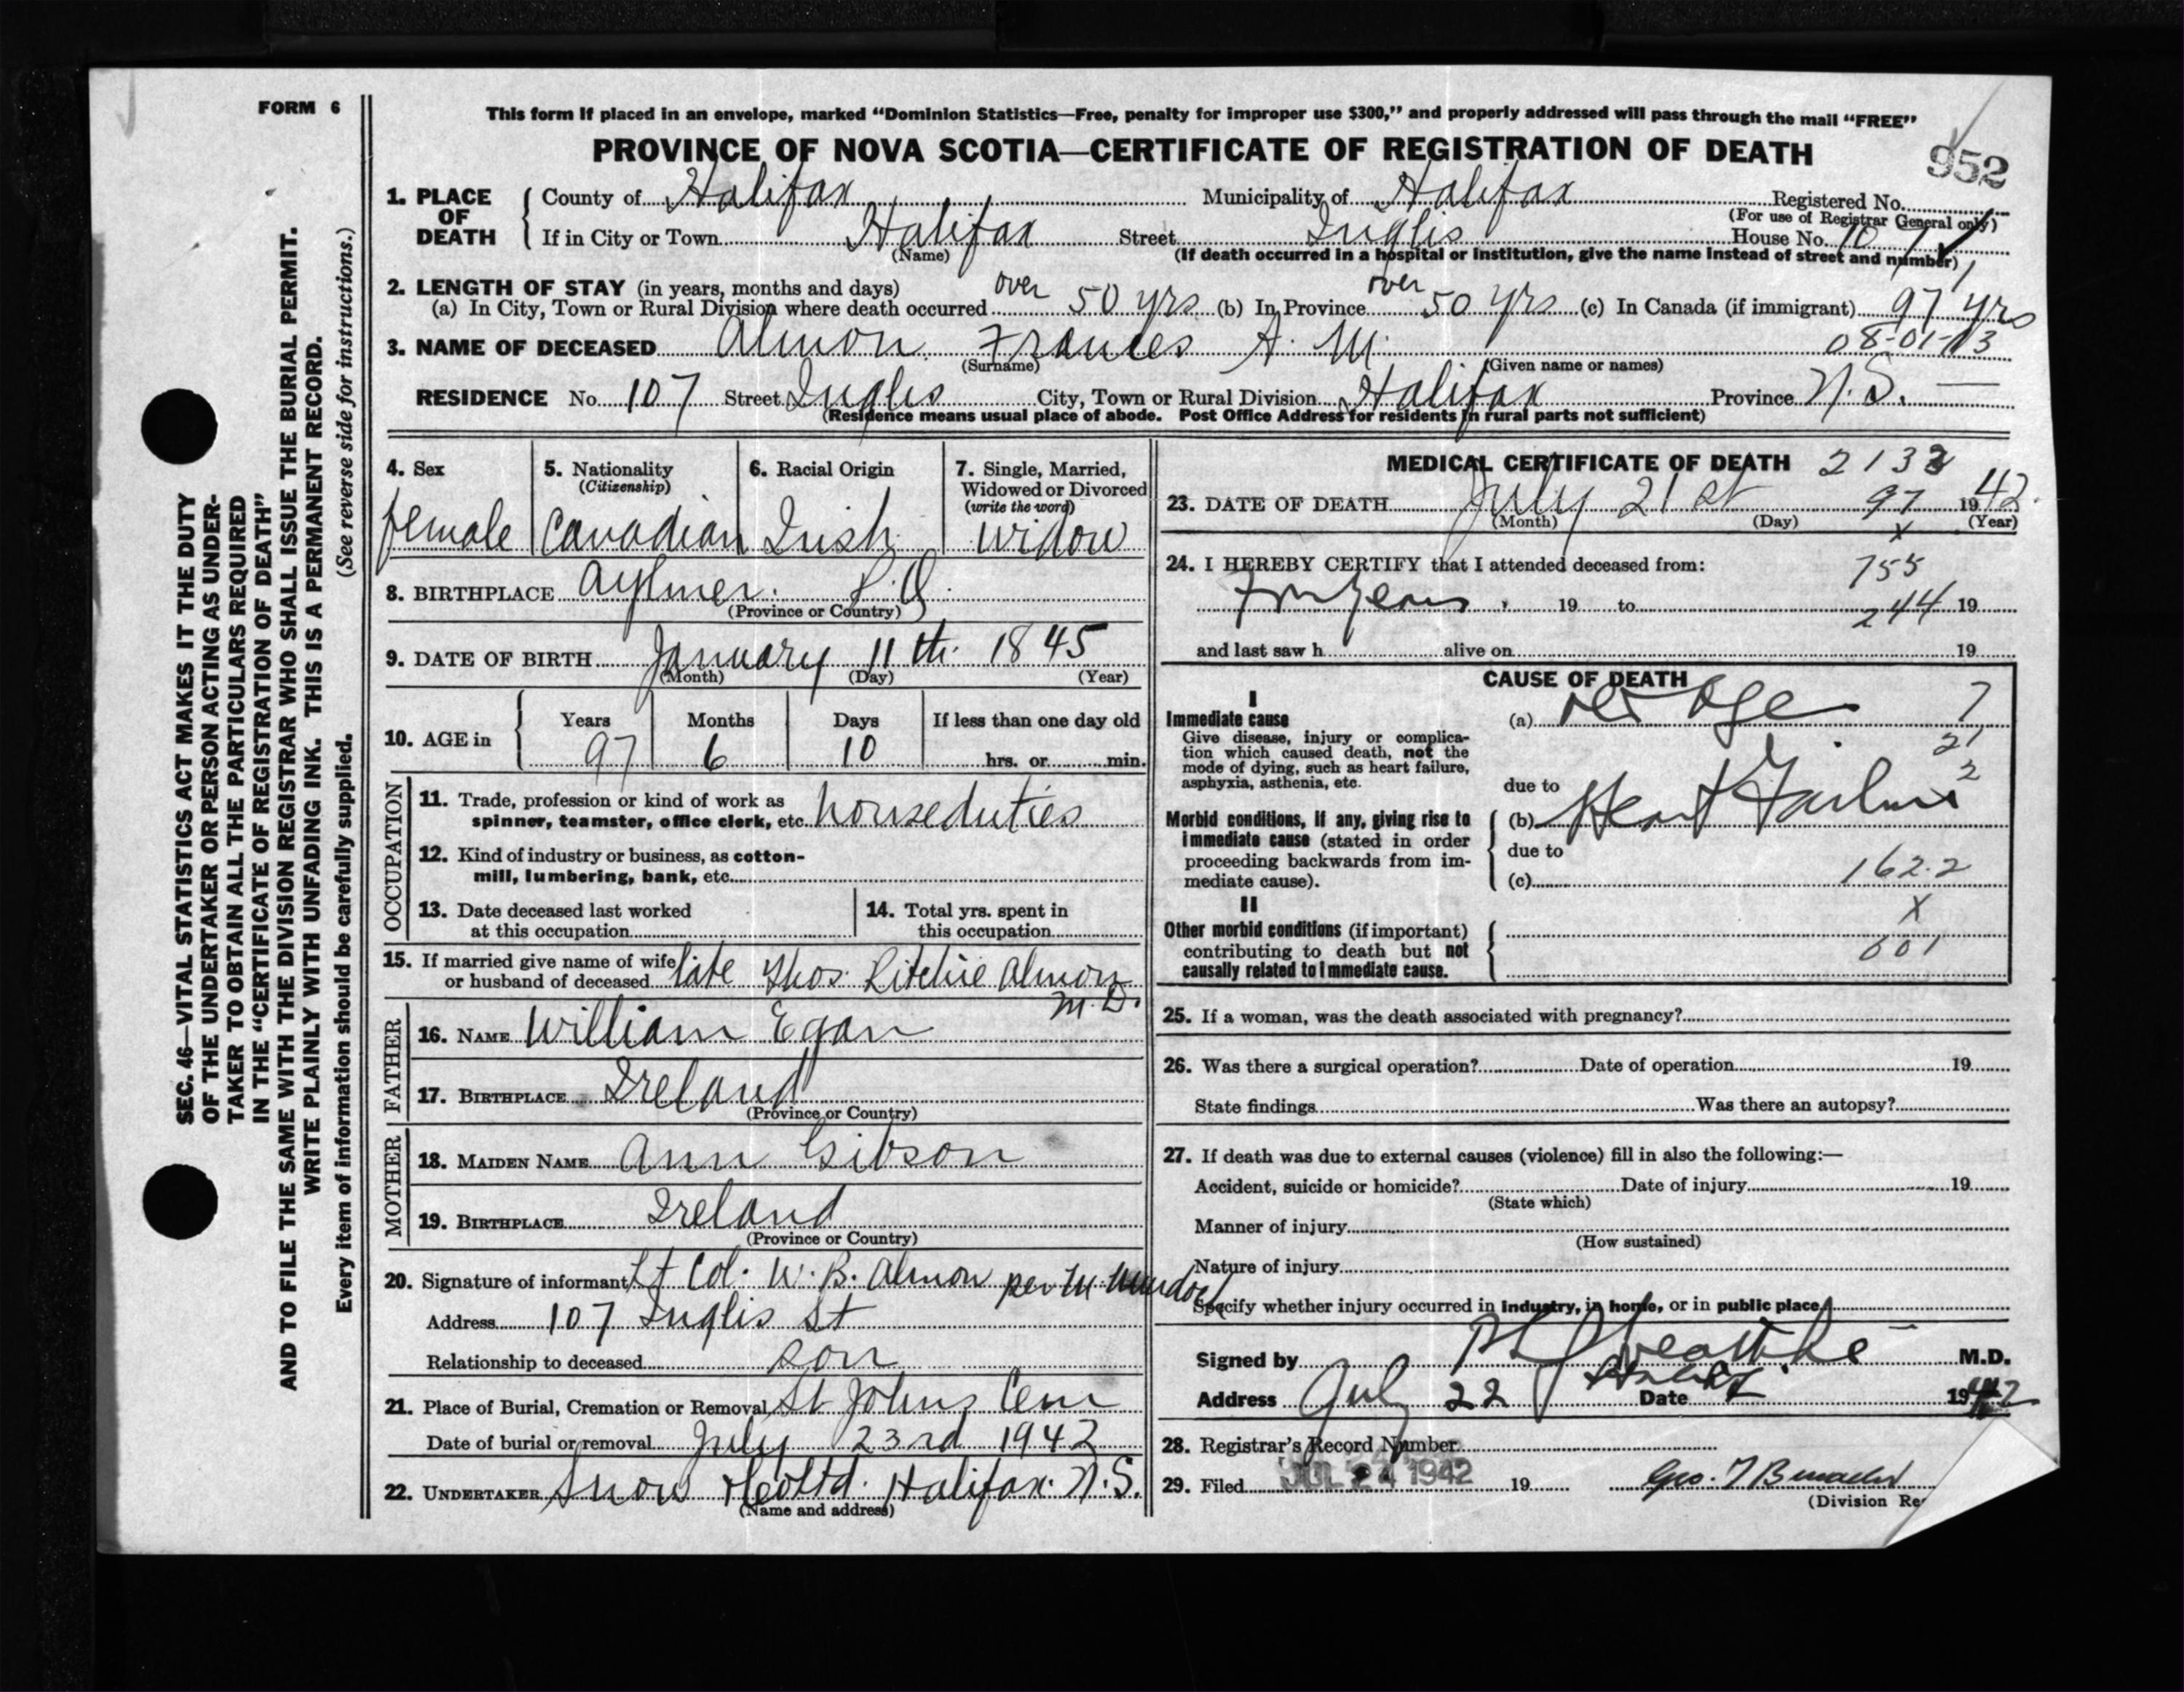 FORM 6
This form if placed in an envelope, marked “Dominion Statistics—Free, penalty for improper use $300,” and properly addressed will pass through the mail “FREE”
PROVINCE OF NOVA SCOTIA—CERTIFICATE OF REGISTRATION OF DEATH
952
1. PLACE OF DEATH
County of Halifax Municipality of Halifax Registered No.
(For use of Registrar General only)
If in City or Town Halifax Street Inglis House No. 107
(Name) (If death occurred in a hospital or institution, give the name instead of street and number)
2. LENGTH OF STAY (in years, months and days)
(a) In City, Town or Rural Division where death occurred over 50 yrs (b) In Province over 50 yrs (c) In Canada (if immigrant) 97 yrs
3. NAME OF DECEASED Almon Frances A. M. 08-01-13
(Surname) (Given name or names)
RESIDENCE No. 107 Street Inglis City, Town or Rural Division Halifax Province N.S.
(Residence means usual place of abode. Post Office Address for residents in rural parts not sufficient)
4. Sex
female
5. Nationality
(Citizenship)
Canadian
6. Racial Origin
Irish
7. Single, Married, Widowed or Divorced
(write the word)
Widow
8. BIRTHPLACE Aylmer. P.Q.
(Province or Country)
9. DATE OF BIRTH January 11th. 1845
(Month) (Day) (Year)
10. AGE in Years Months Days If less than one day old
97 6 10 hrs. or min.
OCCUPATION
11. Trade, profession or kind of work as
spinner, teamster, office clerk, etc. houseduties
12. Kind of industry or business, as cotton-
mill, lumbering, bank, etc.
13. Date deceased last worked
at this occupation
14. Total yrs. spent in
this occupation
15. If married give name of wife
or husband of deceased late Thos. Ritchie Almon
M.D.
FATHER
16. NAME William Egan
17. BIRTHPLACE Ireland
(Province or Country)
MOTHER
18. MAIDEN NAME Ann Gibson
19. BIRTHPLACE Ireland
(Province or Country)
20. Signature of informant Lt Col. W. B. Almon per M.
Address 107 Inglis St
Relationship to deceased son
21. Place of Burial, Cremation or Removal St Johns Cem
Date of burial or removal July 23rd 1942
22. UNDERTAKER Snow & Co Ltd. Halifax. N.S.
(Name and address)
MEDICAL CERTIFICATE OF DEATH
23. DATE OF DEATH July 21st 97 1942.
(Month) (Day) (Year)
x
24. I HEREBY CERTIFY that I attended deceased from:
755
for years, 19 to 244 19
and last saw h alive on 19
CAUSE OF DEATH
I
Immediate cause
Give disease, injury or complica-
tion which caused death, not the
mode of dying, such as heart failure,
asphyxia, asthenia, etc.
(a) Old Age 7
21
2
due to
Morbid conditions, if any, giving rise to
immediate cause (stated in order
proceeding backwards from im-
mediate cause).
(b) Heart Failure
due to
(c) 162.2
II
x
Other morbid conditions (if important)
contributing to death but not
causally related to immediate cause.
601
25. If a woman, was the death associated with pregnancy?
26. Was there a surgical operation? Date of operation 19
State findings Was there an autopsy?
27. If death was due to external causes (violence) fill in also the following:—
Accident, suicide or homicide? Date of injury 19
(State which)
Manner of injury
(How sustained)
Nature of injury
Specify whether injury occurred in industry, in home, or in public place
Signed by M.D.
Address July 22 Date 1942
28. Registrar's Record Number
29. Filed JUL 24 1942 19
(Division Re
SEC. 46—VITAL STATISTICS ACT MAKES IT THE DUTY
OF THE UNDERTAKER OR PERSON ACTING AS UNDER-
TAKER TO OBTAIN ALL THE PARTICULARS REQUIRED
IN THE “CERTIFICATE OF REGISTRATION OF DEATH”
AND TO FILE THE SAME WITH THE DIVISION REGISTRAR WHO SHALL ISSUE THE BURIAL PERMIT.
WRITE PLAINLY WITH UNFADING INK. THIS IS A PERMANENT RECORD.
Every item of information should be carefully supplied. (See reverse side for instructions.)